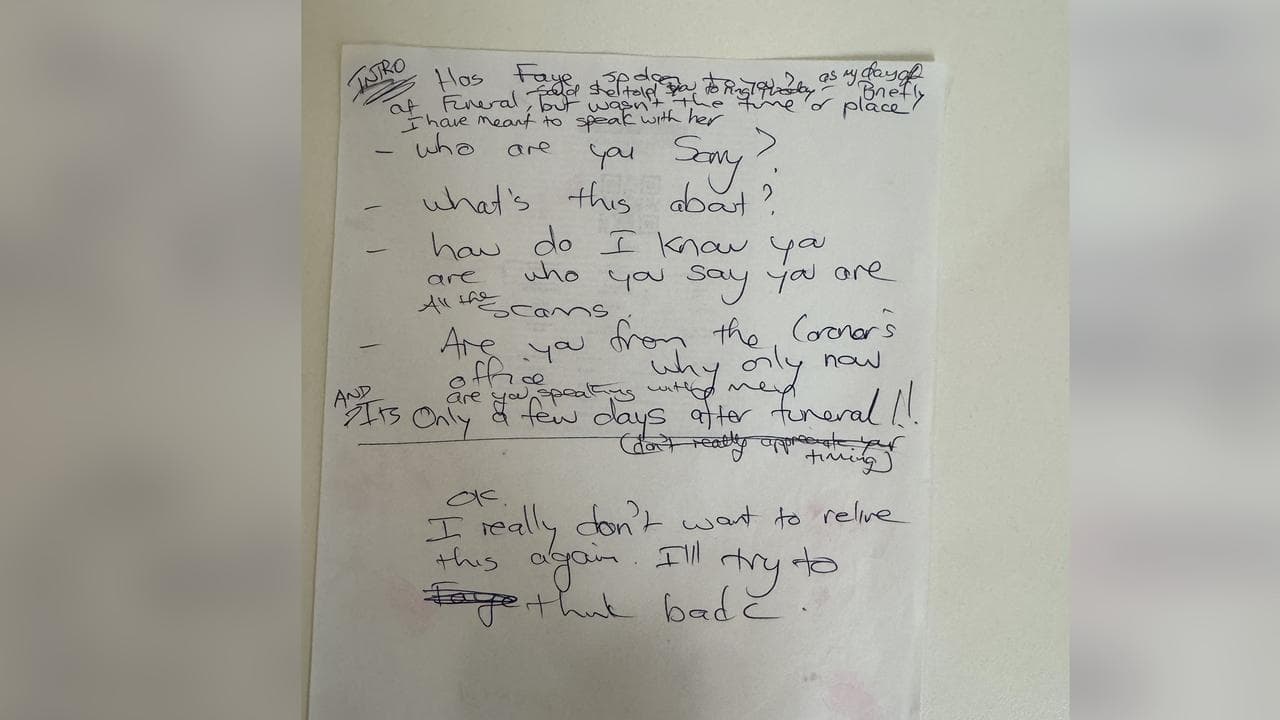 INTRO Has Faye spoken to you? as my day off
said she told you to ring today - Briefly
at Funeral, but wasn't the time or place
I have meant to speak with her
- who are you Sorry?
- what's this about?
- how do I know you
are who you say you are
All the scams.
- Are you from the Coroner's
office why only now
are you speaking with me
AND
>Its Only a few days after funeral!!
(don't really appreciate your
timing)
OK.
I really don't want to relive
this again. I'll try to
Faye think back.